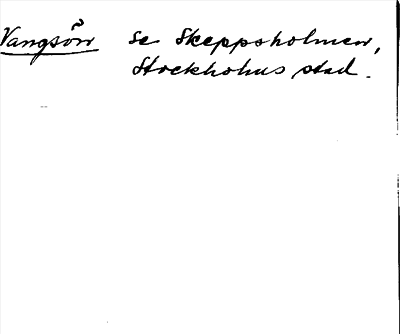 Vangsön se Skeppsholmen,
Stockholms stad.